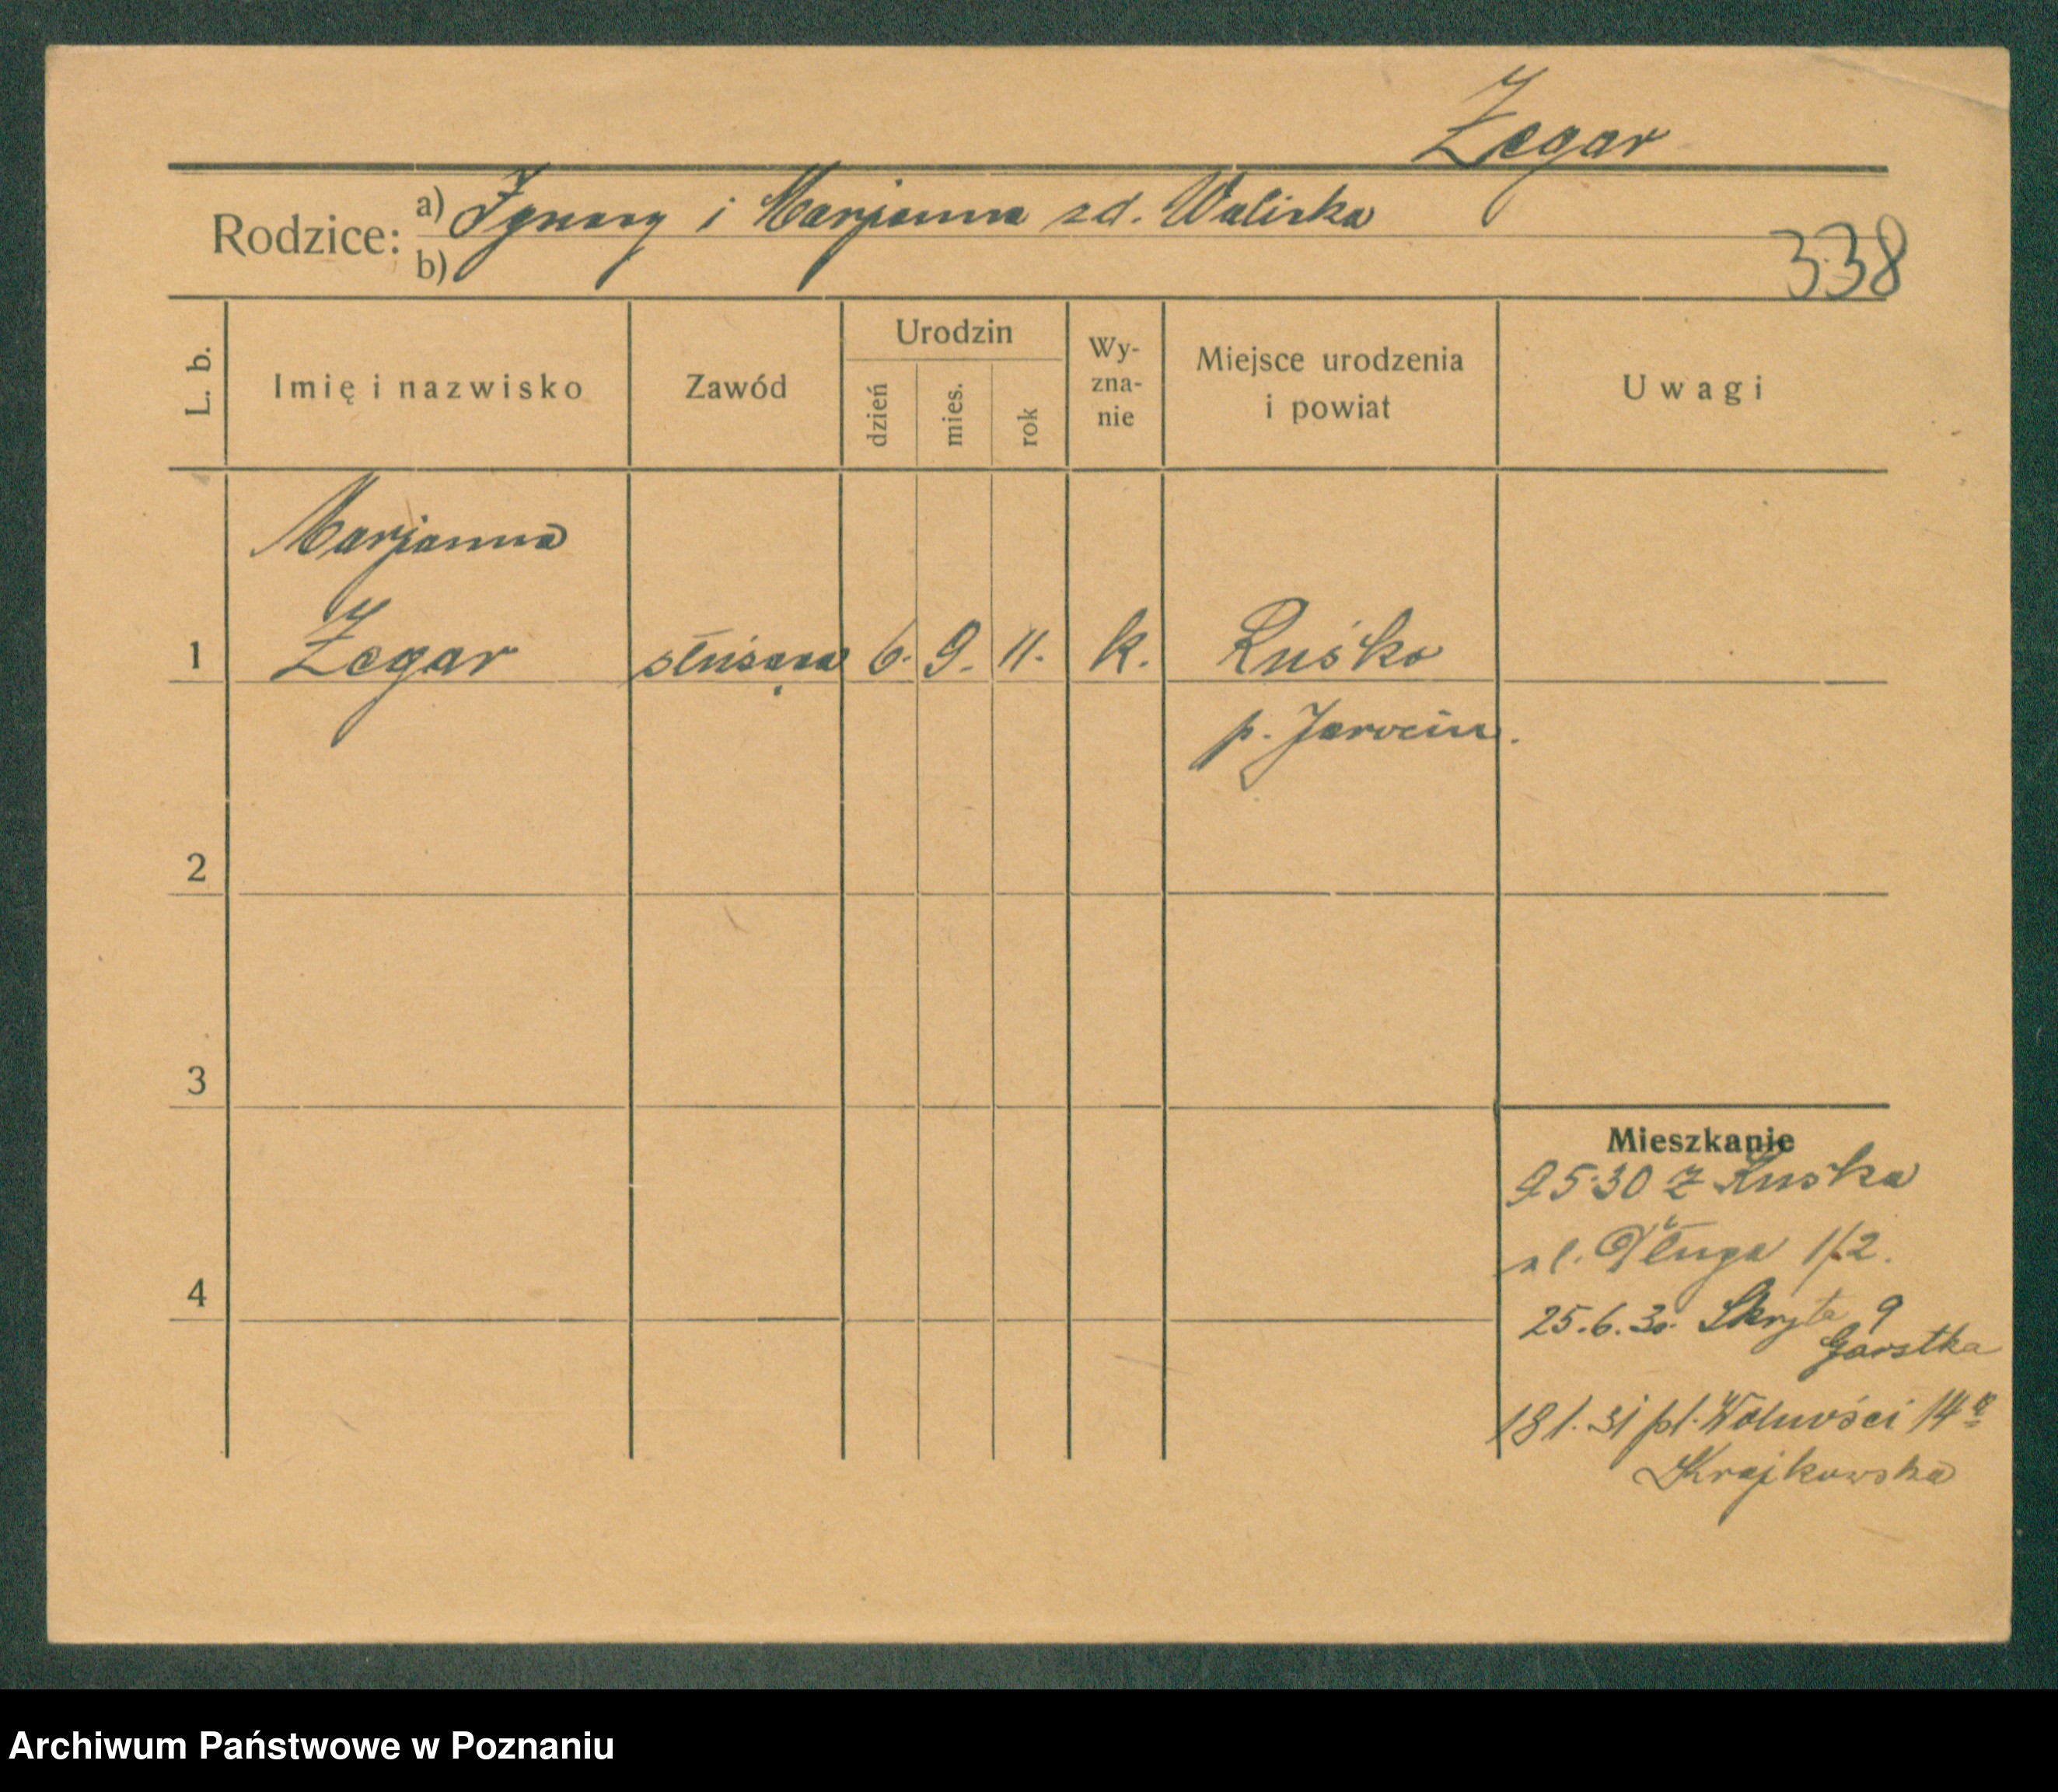 Zegar
Rodzice: a) Ignacy i Marjanna zd. Waliska
b)
338
L. b.
Imię i nazwisko
Zawód
Urodzin
dzień
mies.
rok
Wy-
zna-
nie
Miejsce urodzenia
i powiat
Uwagi
Marjanna
1 Zegar służąca 6. 9. 11. k. Ruśko
p. Jarocin.
2
3
4
Mieszkanie
9 5 30 z Ruska
ul. Długa 1/2.
25.6.30. Skryta 9
Garstka
18 1. 31 pl. Wolności 14a
Krajkowska
Archiwum Państwowe w Poznaniu